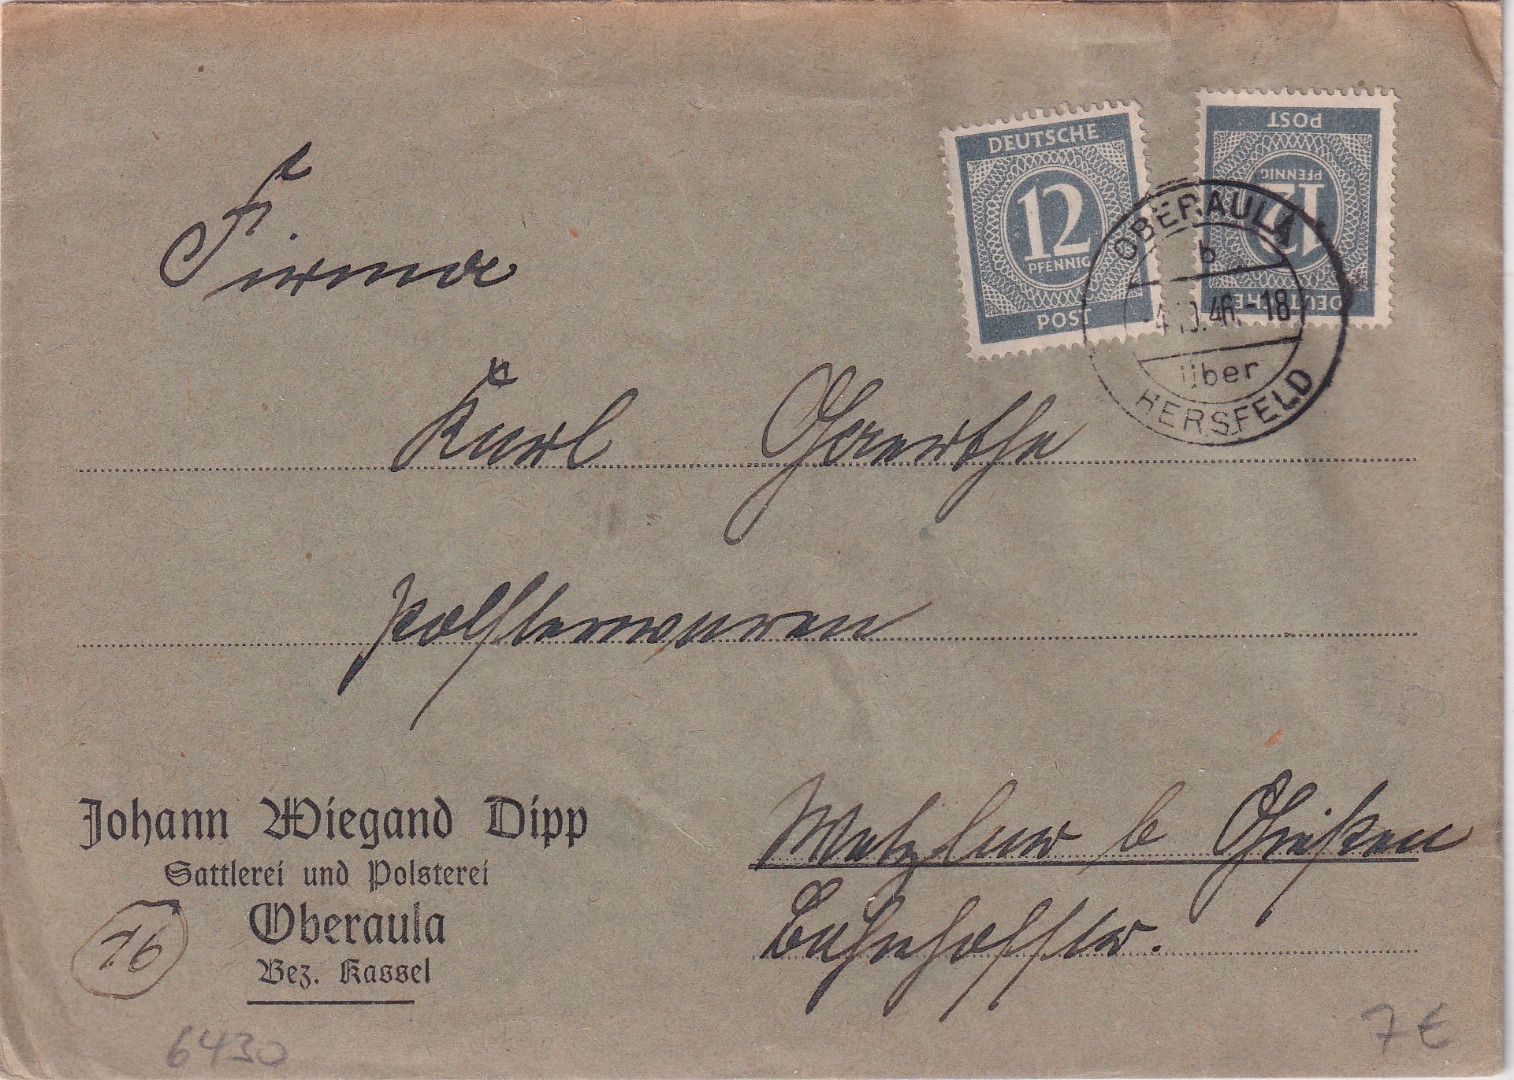 DEUTSCHE
12
PFENNIG
POST
DEUTSCHE
12
PFENNIG
POST
OBERAULA
b
-4.10.46.-18
über
HERSFELD
Firma
Karl Goerthe
Polsterwaren
Wetzlar b Gießen
Bahnhofstr.
Johann Wiegand Dipp
Sattlerei und Polsterei
Oberaula
Bez. Kassel
16
6430
7 €